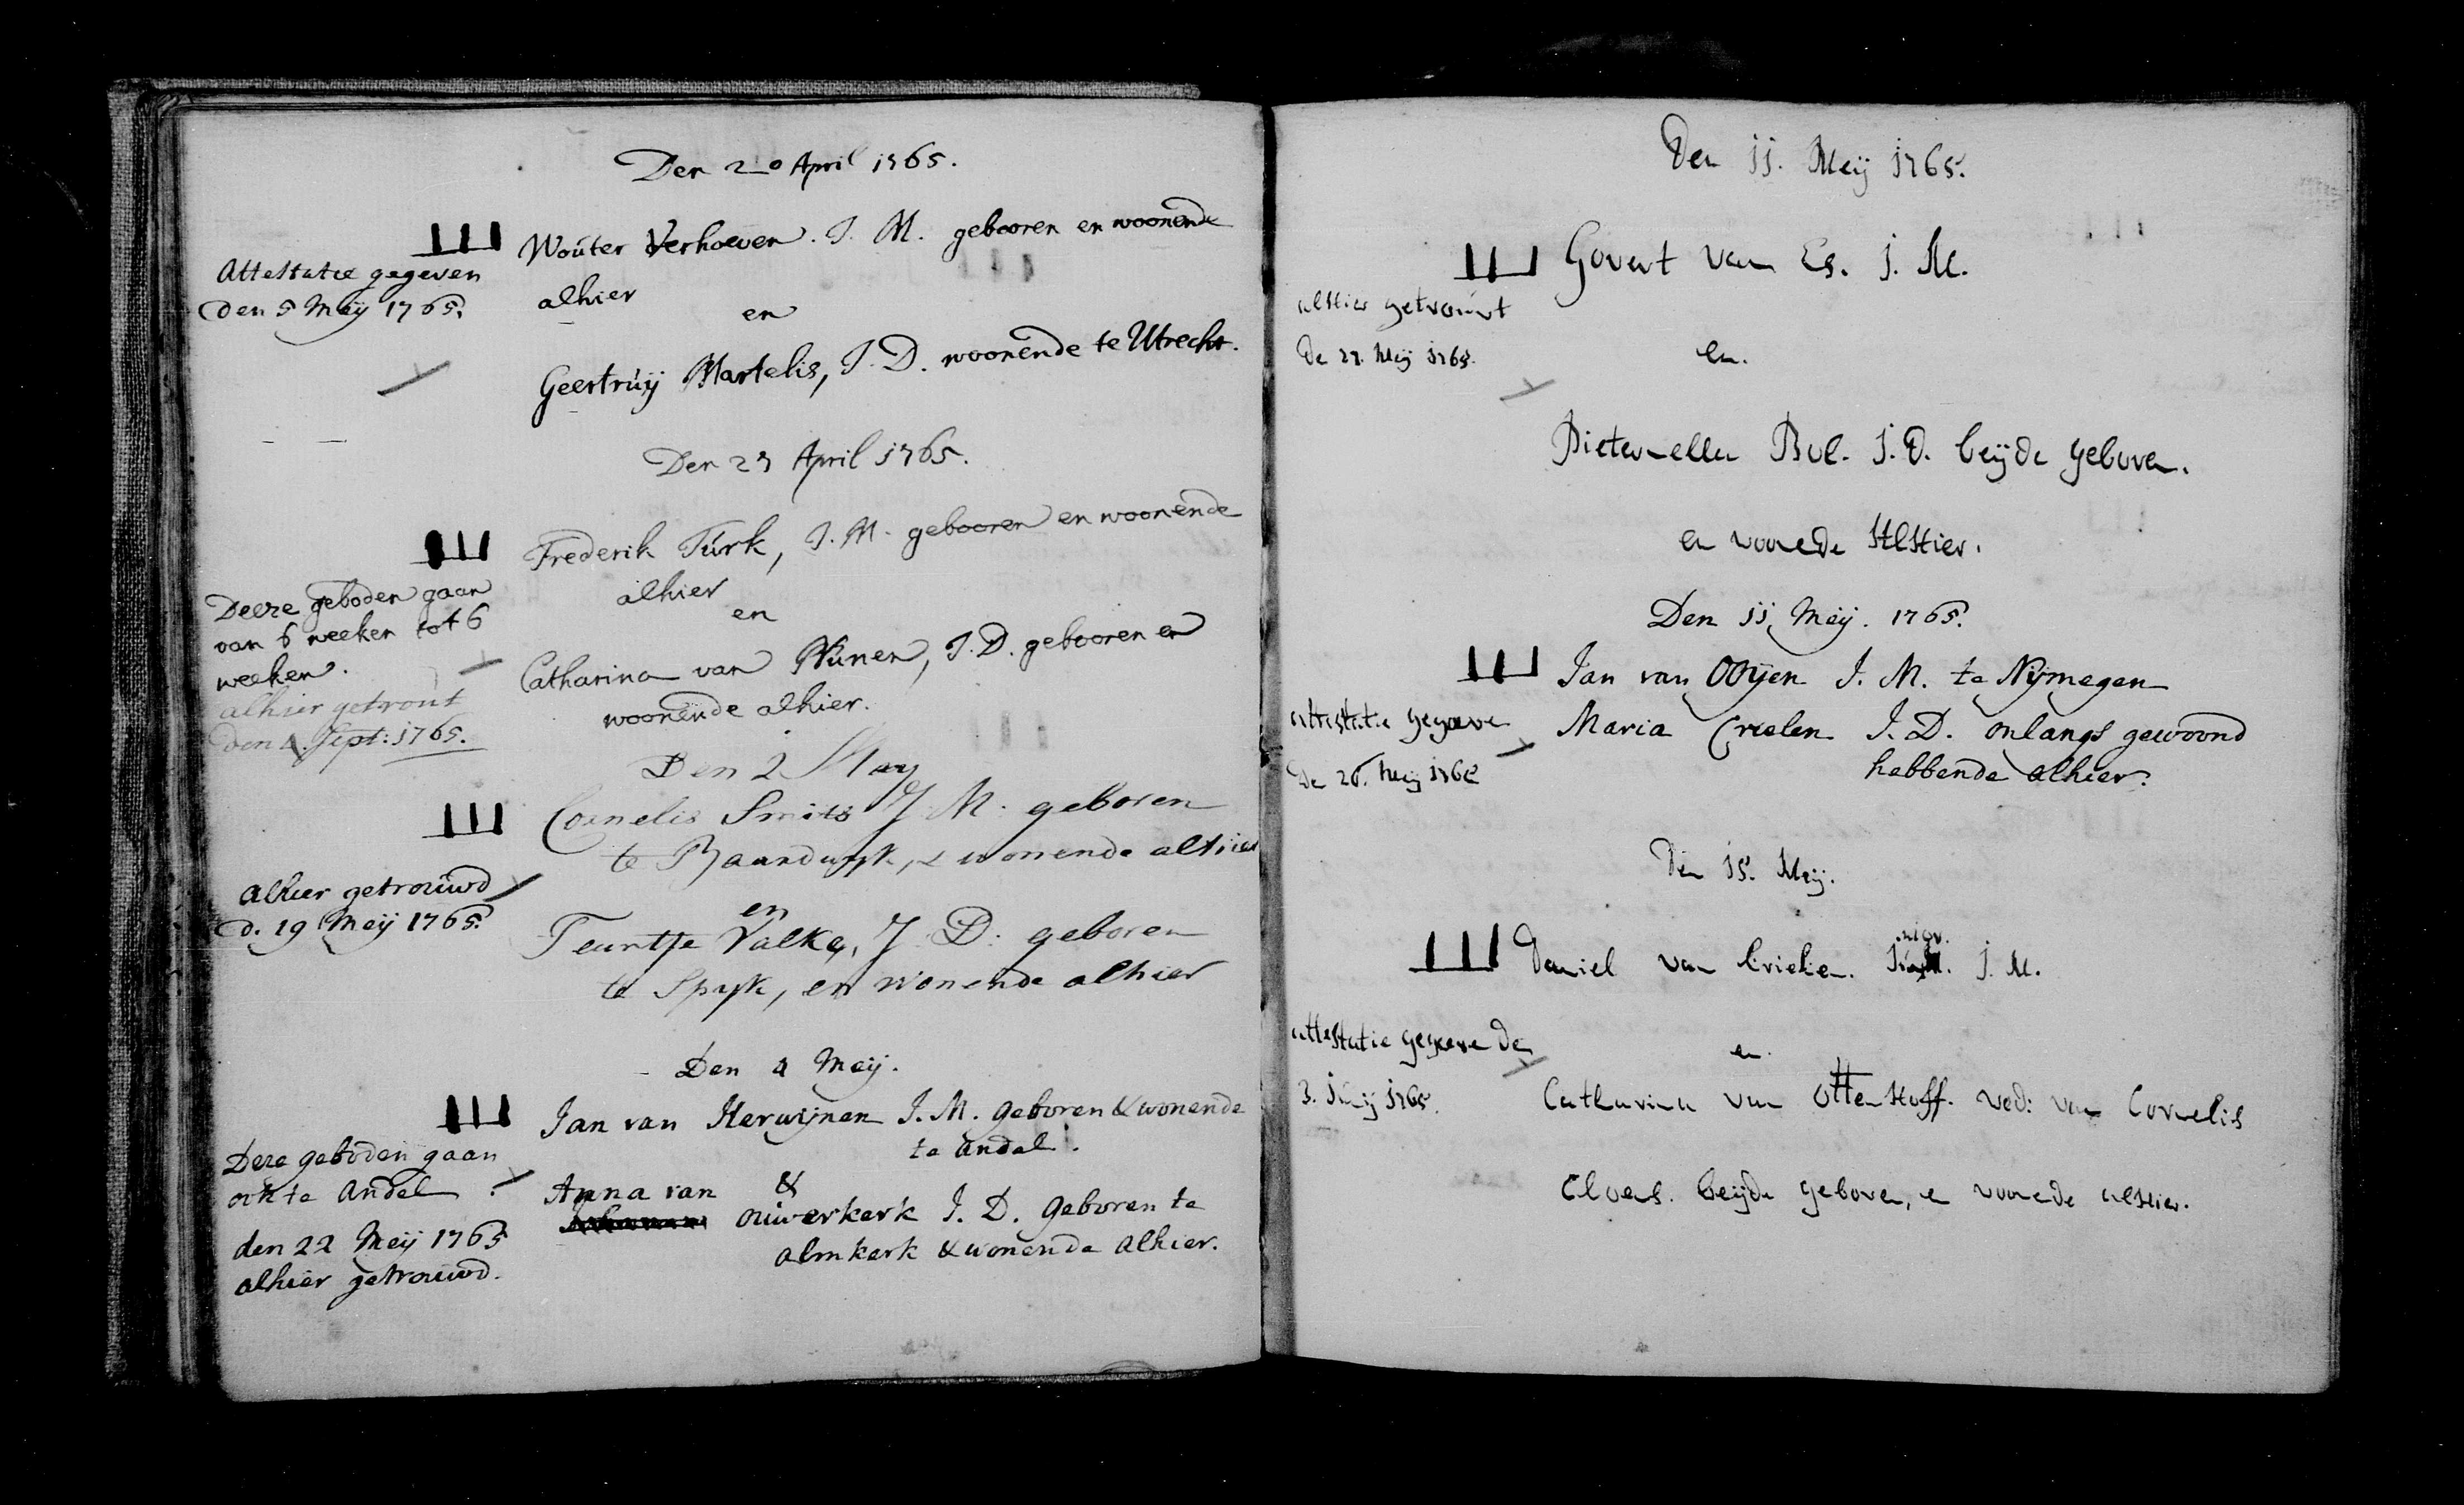 Den 20 April 1765.
Wouter Verhoeven. J. M. gebooren en woonende
Attestatie gegeven
den 5 Meij 1765.
alhier
en
Geertruij Martelis, J. D. woonende te Utrecht.
Den 27 April 1765.
Frederik Turk, J. M. gebooren en woonende
alhier
en
Deeze geboden gaan
van 6 weeken tot 6
weeken.
alhier getrout
den 4. Sept: 1765.
Catharina van Wunen, J. D. gebooren en
woonende alhier.
Den 2 May
Cornelis Smits J M. geboren
te Baardwyk, & wonende alhier
alhier getrouwd
d. 19 Meij 1765.
en
Teuntje Valke, J D. geboren
te Spyk, en wonende alhier
Den 4 Meij.
Jan van Herwijnen J. M. geboren & wonende
te andel.
Deze geboden gaan
ook te Andel.
den 22 Meij 1765
alhier getrouwd.
&
Anna van
ouwerkerk J. D. geboren te
almkerk & wonende alhier.
Den 11. Meij 1765.
Govert van Es. J. M.
alhier getrouwt
De 27. Meij 1765.
en.
Pieternella Bol. J. D. beijde gebore.
en woonede Alhier.
Den 11, Meij. 1765.
Jan van Ooijen J. M. te Nijmegen
Maria Crielen J. D. onlangs gewoond
hebbende alhier.
attestatie gegeve
De 26. Meij 1765
Den 15. Meij.
Daniel van Crieken. J. M.
attestatie gegeve de
3. Junij 1765.
en.
Catharina van Ottenhoff. wed: van Cornelis
Cloens. beijde gebore, e woonede alhier.